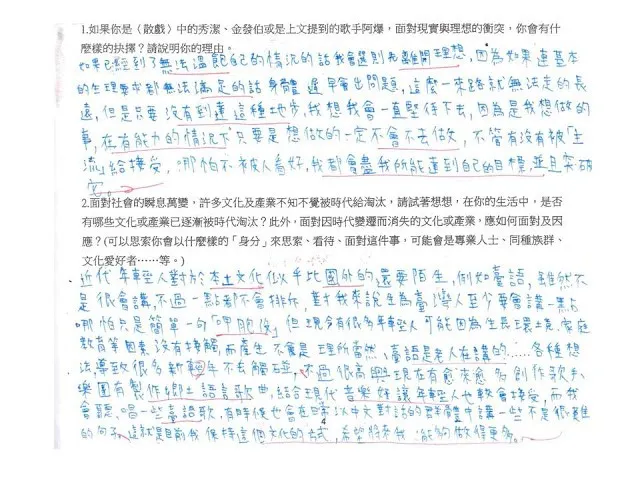 1.如果你是〈散戲〉中的秀潔、金發伯或是上文提到的歌手阿爆，面對現實與理想的衝突，你會有什
麼樣的抉擇？請說明你的理由。
如果已經到了無法溫飽自己的情況的話我會選則先離開理想，因為如果連基本
的生理要求都無法滿足的話身體遲早會出問題，這麼一來路就無法走的長
遠，但是只要沒有到達這種地步，我想我會一直堅持下去，因為是我想做的
事，在有能力的情況下只要是想做的一定不會不去做，不管有沒有被「主
流」給接受，哪怕不被人看好，我都會盡我所能達到自己的目標，並且突破
它。
2.面對社會的瞬息萬變，許多文化及產業不知不覺被時代給淘汰，請試著想想，在你的生活中，是否
有哪些文化或產業已逐漸被時代淘汰？此外，面對因時代變遷而消失的文化或產業，應如何面對及因
應？(可以思索你會以什麼樣的「身分」來思索、看待、面對這件事，可能會是專業人士、同種族群、
文化愛好者……等。)
近代年輕人對於本土文化似乎比國外的還要陌生，例如臺語，雖然不
是很會講，不過一點都不會排斥，對我來說生為臺灣人至少要會講一點
哪怕只是簡單一句「呷飽沒」但現今有很多年輕人可能因為生長環境、家庭
教育等因素沒有接觸，而產生不會是理所當然、臺語是老人在講的……各種想
法導致很多新輕年不去觸碰，不過很高興現在有愈來愈多創作歌手、
樂團有製作鄉土語言歌曲，結合現代音樂好讓年輕人也較會接受，而我
會聽、唱一些臺語歌，有時候也會在日常以中文對話的群體中講一些不是很艱難
的句子，這就是目前我保持這個文化的方式，希望將來我能夠做得更多。
4